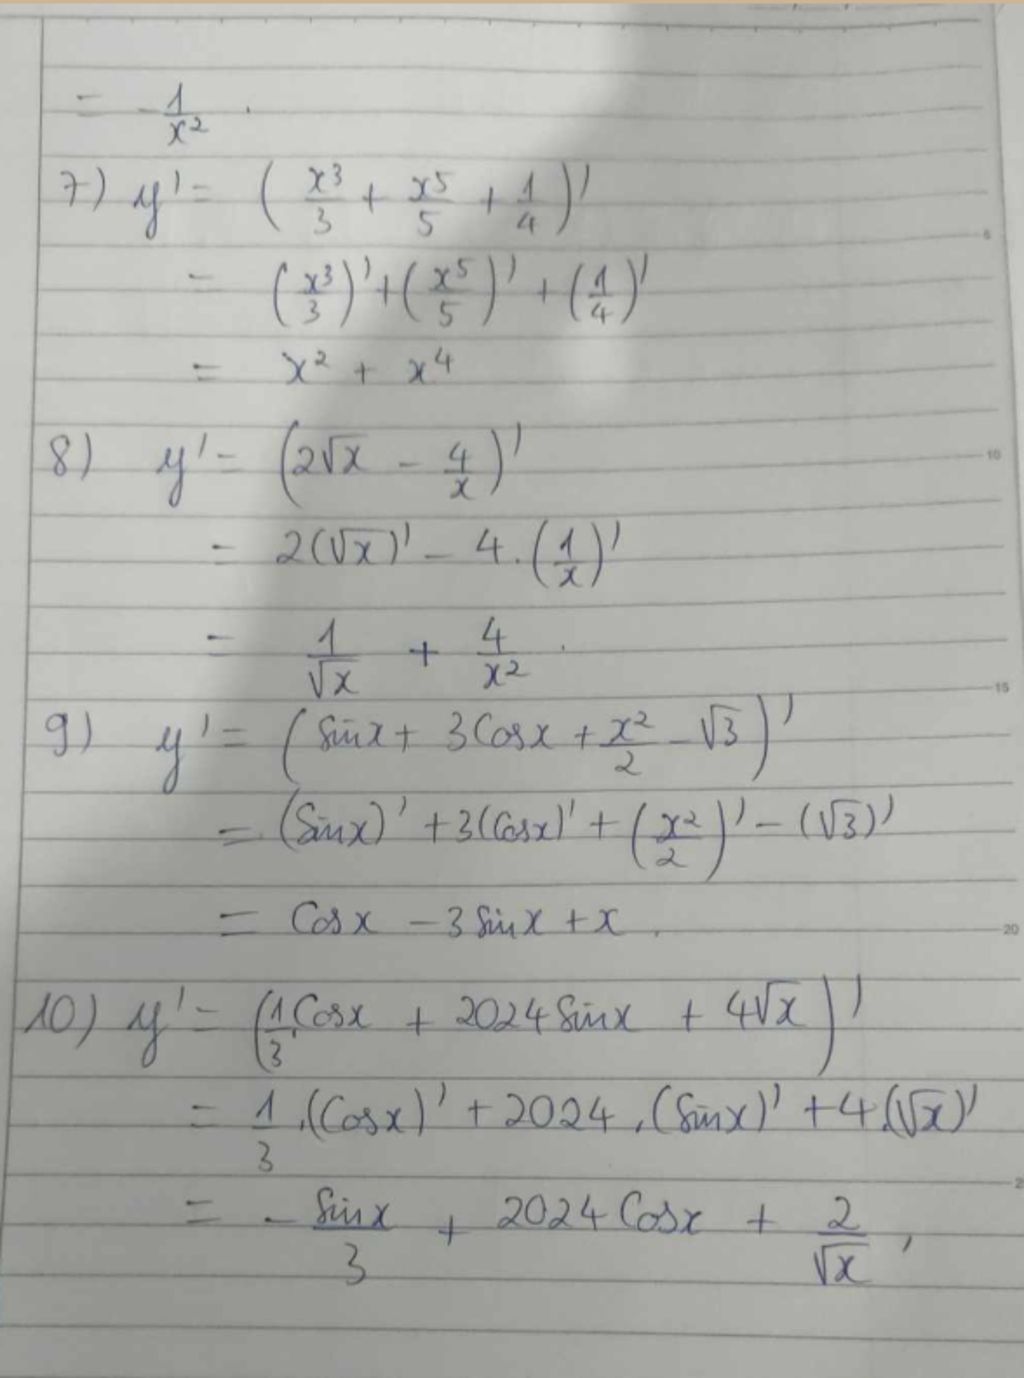 = - 1/x²
7) y' = (x³/3 + x⁵/5 + 1/4)'
= (x³/3)' + (x⁵/5)' + (1/4)'
= x² + x⁴
8) y' = (2√x - 4/x)'
= 2(√x)' - 4.(1/x)'
= 1/√x + 4/x².
9) y' = (Sinx + 3Cosx + x²/2 - √3)'
= (Sinx)' + 3(Cosx)' + (x²/2)' - (√3)'
= Cosx - 3Sinx + x.
10) y' = (1/3.Cosx + 2024Sinx + 4√x)'
= 1/3.(Cosx)' + 2024.(Sinx)' + 4.(√x)'
= - Sinx/3 + 2024Cosx + 2/√x,
5
10
15
20